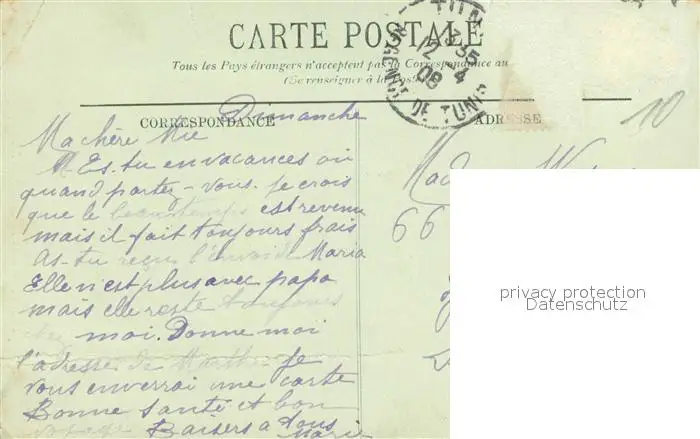 CARTE POSTALE
Tous les Pays étrangers n'acceptent pas la Correspondance au
(Se renseigner à la Poste)
TUN
1335
12 - 4
08
DE TUNIS
CORRESPONDANCE
ADRESSE
10
Dimanche
Ma chère Mie
Es-tu en vacances ou
quand partez-vous. Je crois
que le beau temps est revenu
mais il fait toujours frais
As-tu reçu l'envoi de Maria
Elle n'est plus avec papa
mais elle reste toujours
moi. Donne moi
l'adresse de Marthe. Je
vous enverrai une carte
Bonne Santé et bon
voyage Baisers a tous
Marie
66
privacy protection
Datenschutz